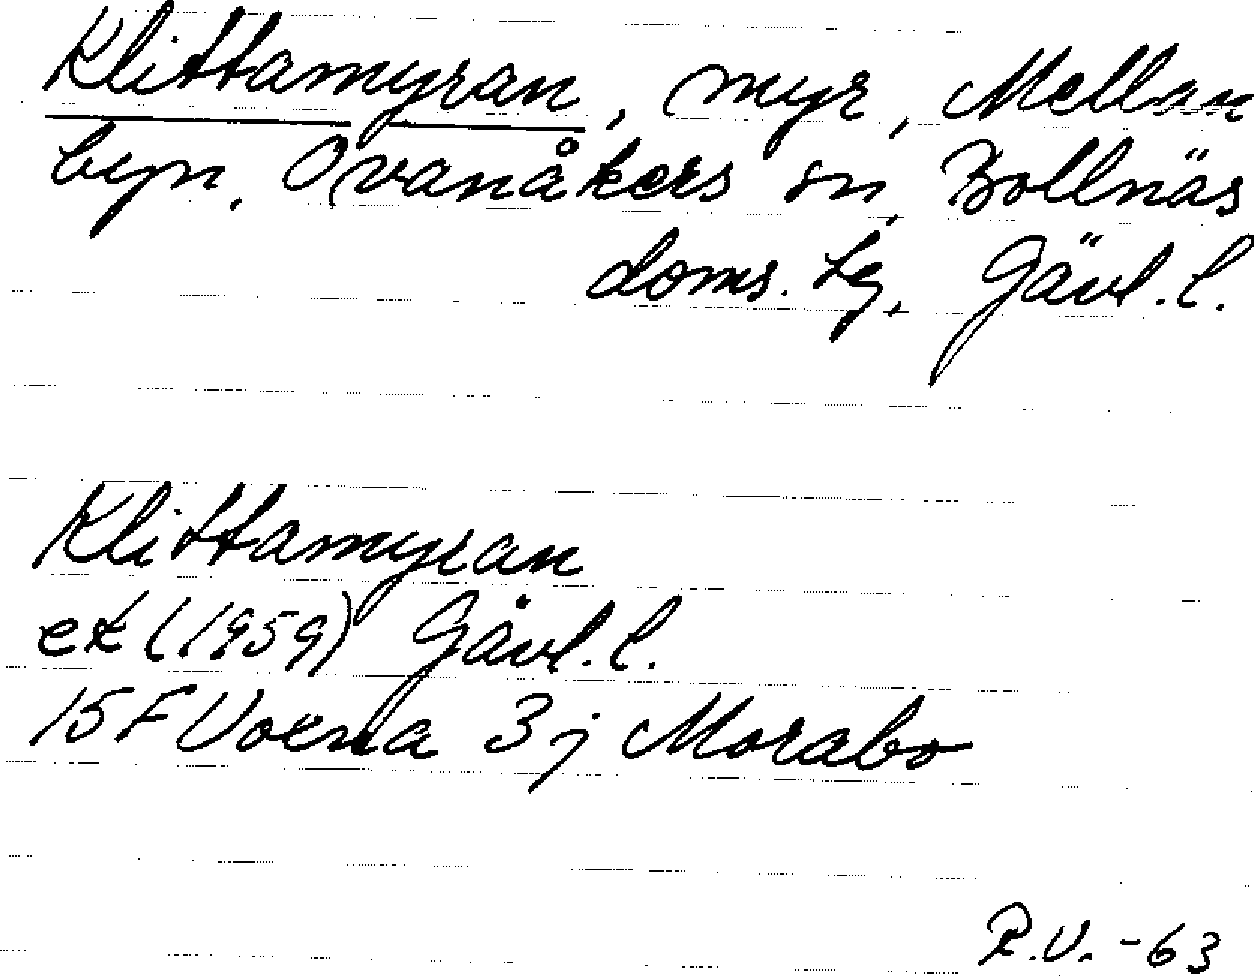 Klittamyran, myr, Mellan
byn, Ovanåkers sn, Bollnäs
doms. tg, Gävl. l.
Klittamyran
ek (1959) Gävl. l.
15 F Voxna 3 j Morabo
R.V. -63